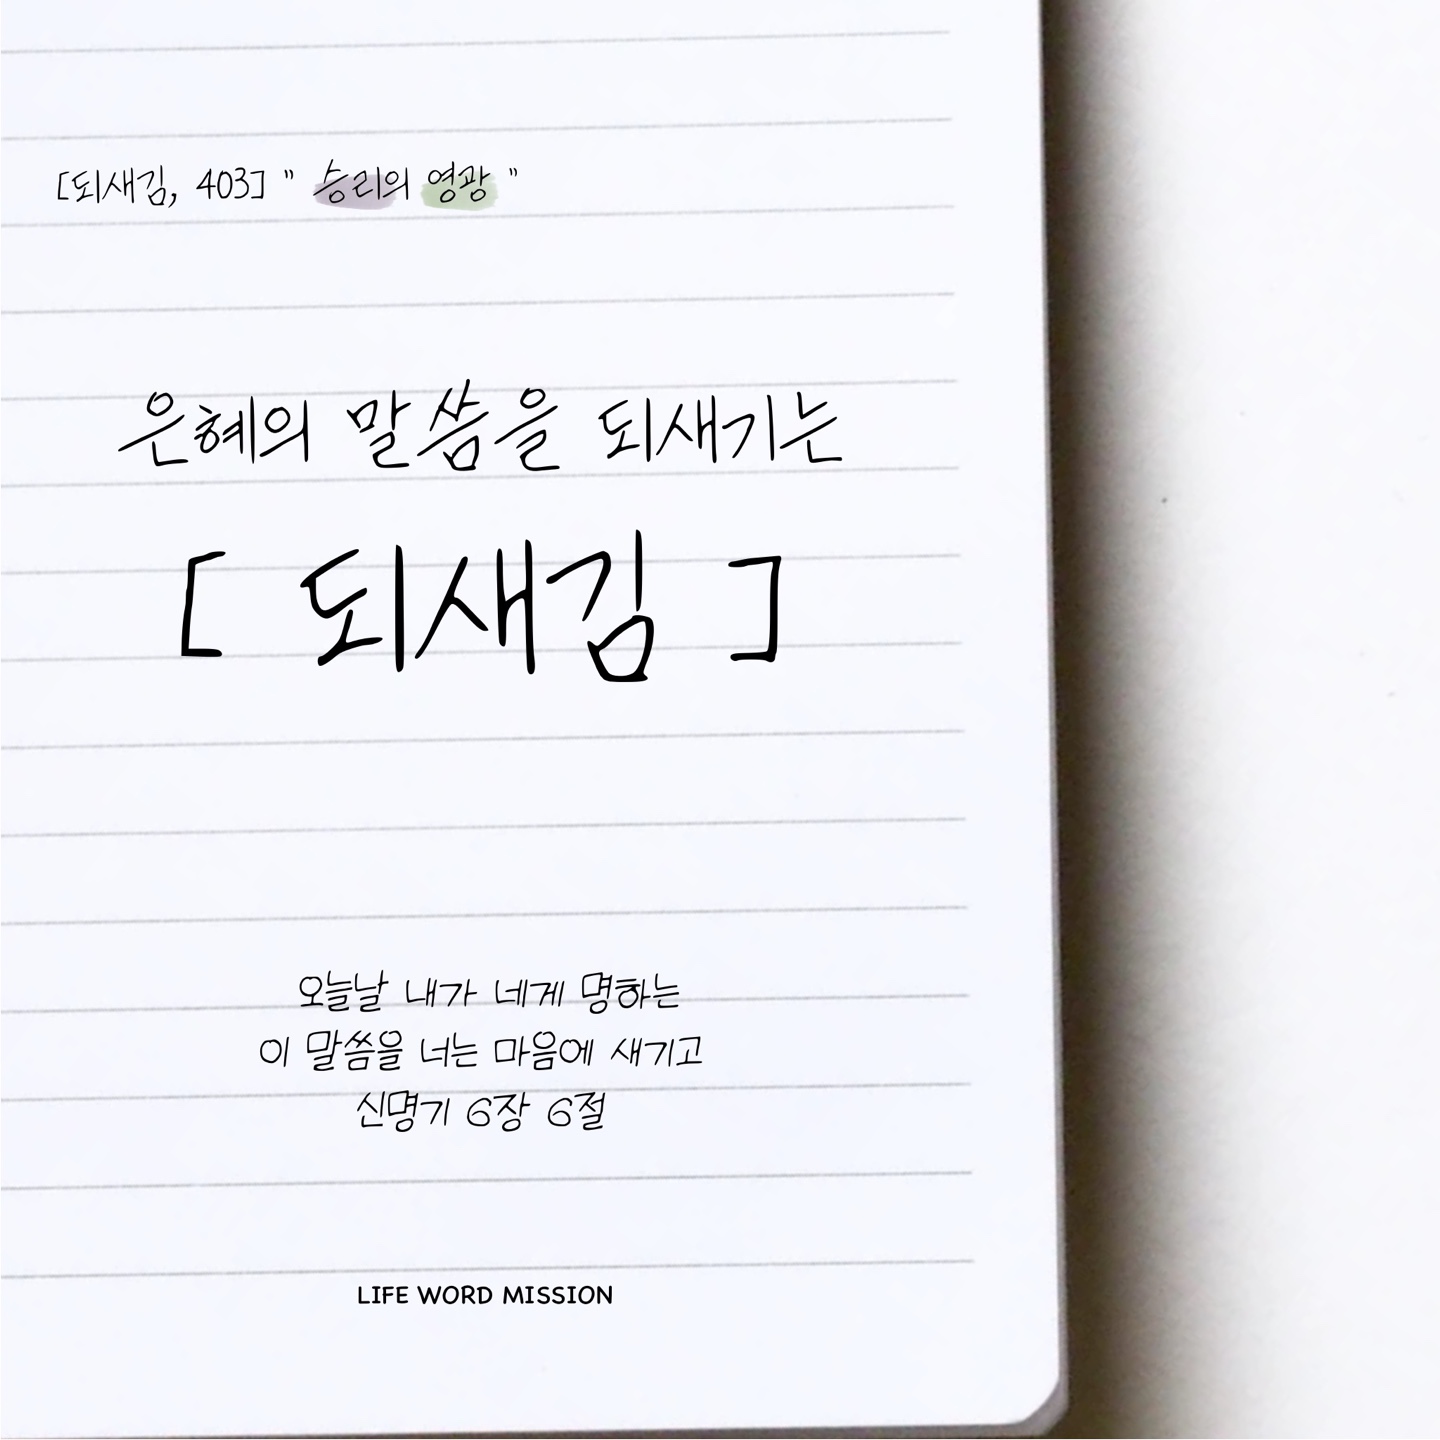 [되새김, 403] " 승리의 영광 "
은혜의 말씀을 되새기는
[ 되새김 ]
오늘날 내가 네게 명하는
이 말씀을 너는 마음에 새기고
신명기 6장 6절
LIFE WORD MISSION